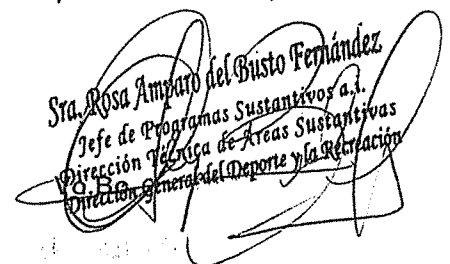 Sra. Rosa Amparo del Busto Fernández
Jefe de Programas Sustantivos a.i.
Dirección Técnica de Áreas Sustantivas
Dirección General del Deporte y la Recreación
Vo.Bo.